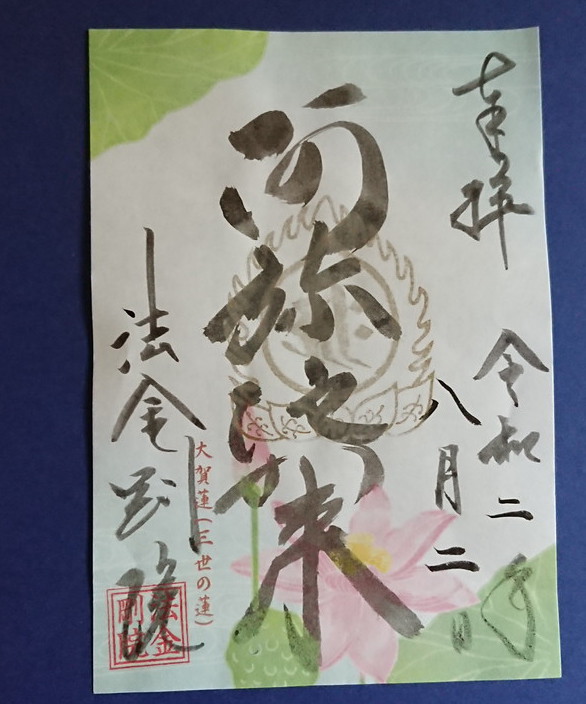 奉拝
令和二年
八月二日
阿弥陀如来
大賀蓮(三世の蓮)
法金剛院
法金
剛院